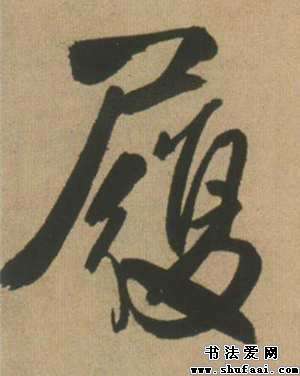 履
书法爱网
www.shufaai.com